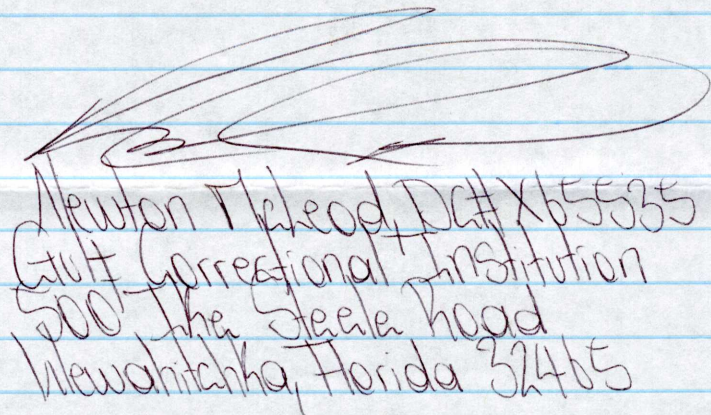 Newton McLeod, DC# X65535
Gulf Correctional Institution
500 Ike Steele Road
Wewahitchka, Florida 32465